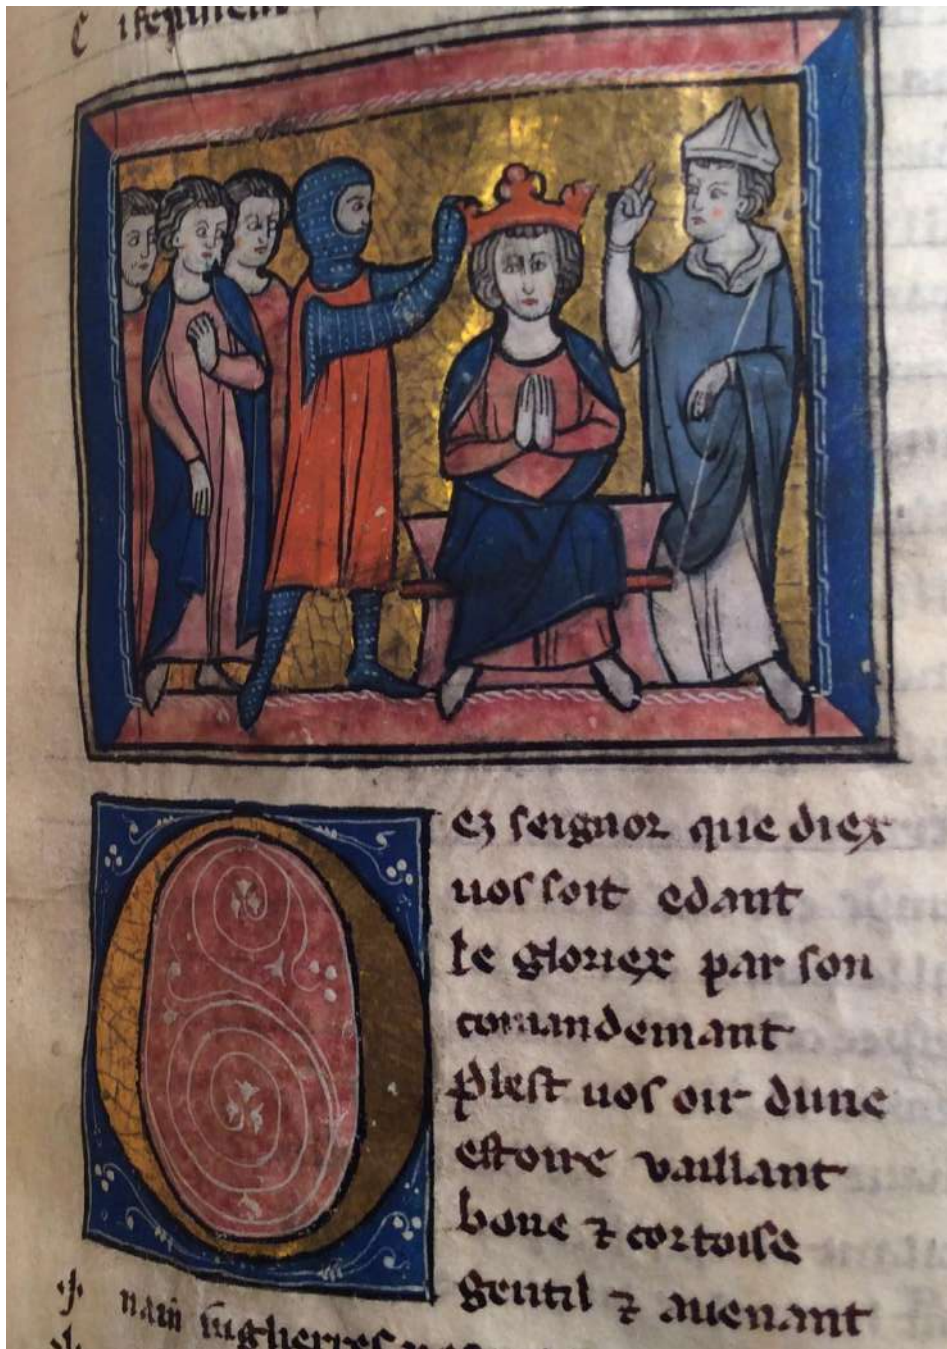 O
ez seignor que diex
uos soit edant
le gloriex par son
comandemant
Plest uos oir dune
estoire vaillant
bone ⁊ cortoise
gentil ⁊ auenant